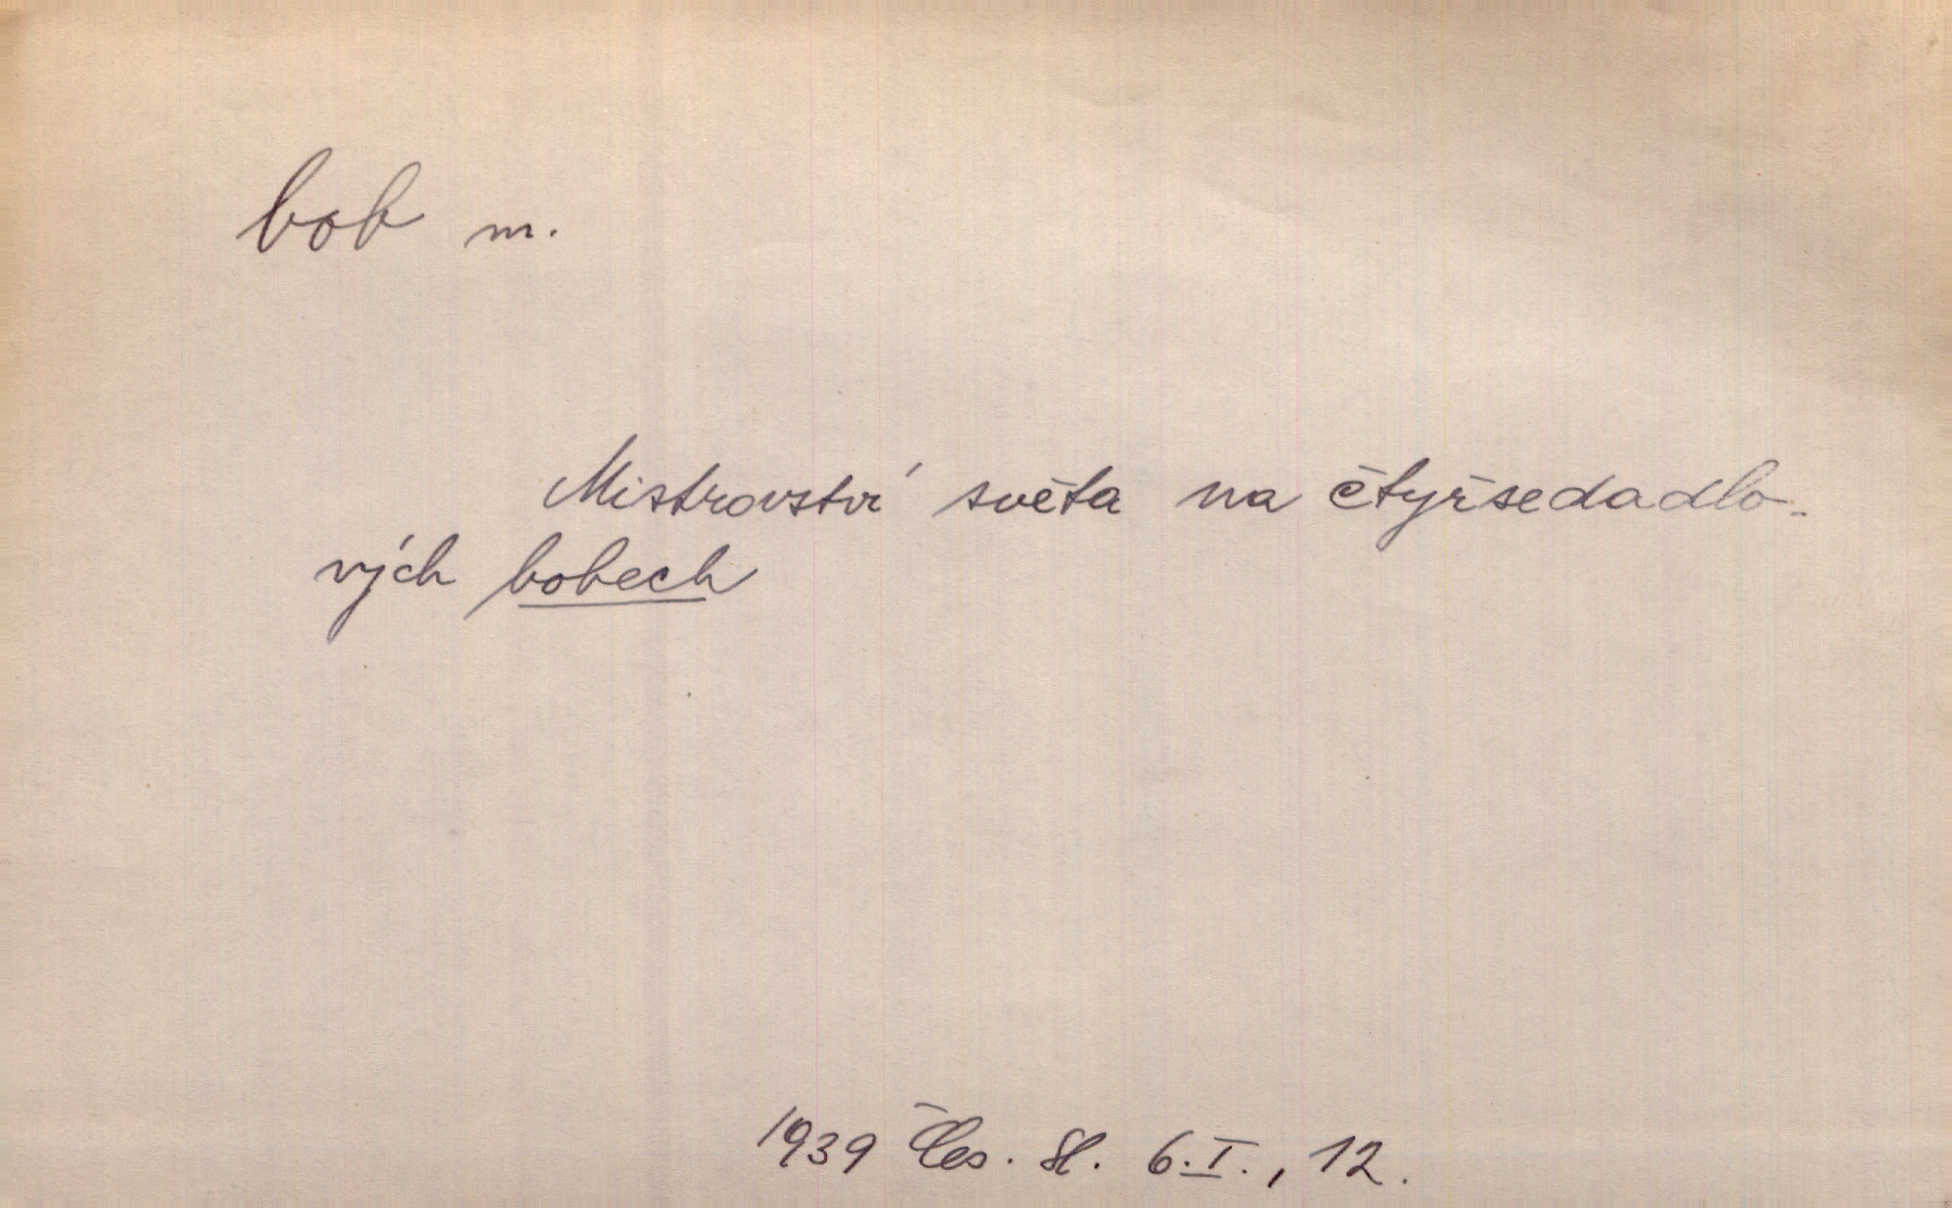 bob m.
Mistrovství světa na čtyřsedadlo-
vých bobech
1939 Čes. sl. 6.I., 12.